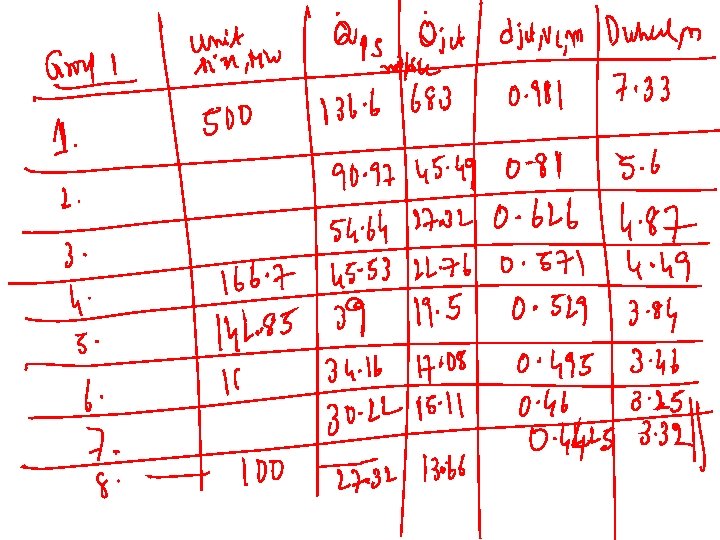 Group 1 Unit size, MW Q̇ps m³/sec Q̇jet djet,vc,m Dwheel,m
1. 500 136.6 683 0.981 7.33
2. 90.97 45.49 0-81 5.6
3. 54.64 27.32 0.626 4.87
4. 166.7 45.53 22.76 0.571 4.49
5. 142.85 39 19.5 0.529 3.84
6. 34.16 17.08 0.495 3.46
7. 30.22 15.11 0.46 3.25
8. 100 27.32 13.66 0.4425 3.32